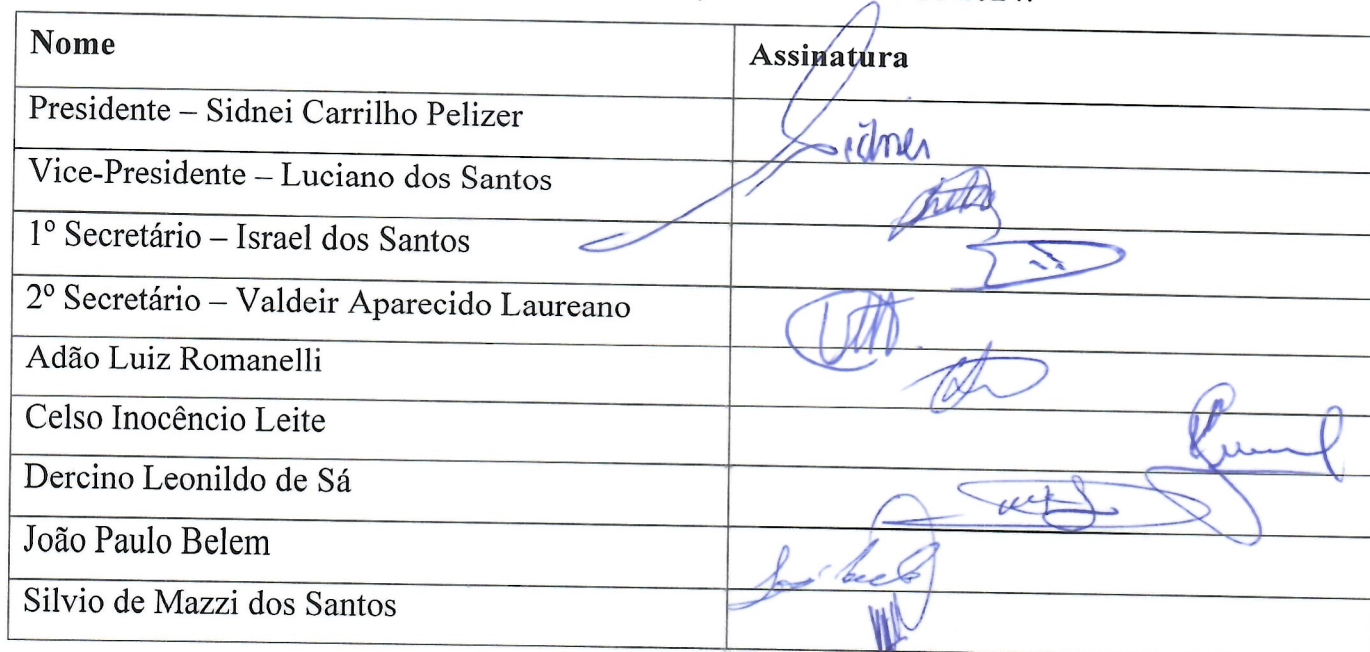 Nome Assinatura
Presidente – Sidnei Carrilho Pelizer Sidnei
Vice-Presidente – Luciano dos Santos
1º Secretário – Israel dos Santos
2º Secretário – Valdeir Aparecido Laureano
Adão Luiz Romanelli
Celso Inocêncio Leite
Dercino Leonildo de Sá
João Paulo Belem
Silvio de Mazzi dos Santos